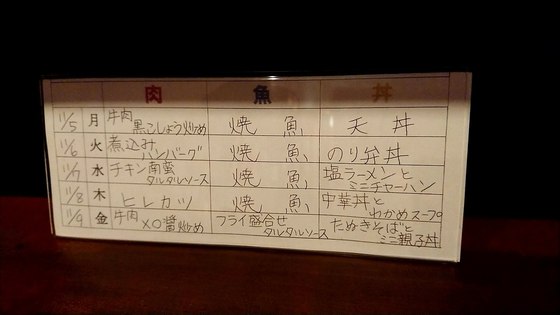 肉 魚 丼
11/5 月 牛肉 黒こしょう炒め 焼魚 天丼
11/6 火 煮込み ハンバーグ 焼魚 のり弁丼
11/7 水 チキン南蛮 タルタルソース 焼魚 塩ラーメンと ミニチャーハン
11/8 木 ヒレカツ 焼魚 中華丼と わかめスープ
11/9 金 牛肉 XO醤炒め フライ盛合せ タルタルソース たぬきそばと ミニ親子丼